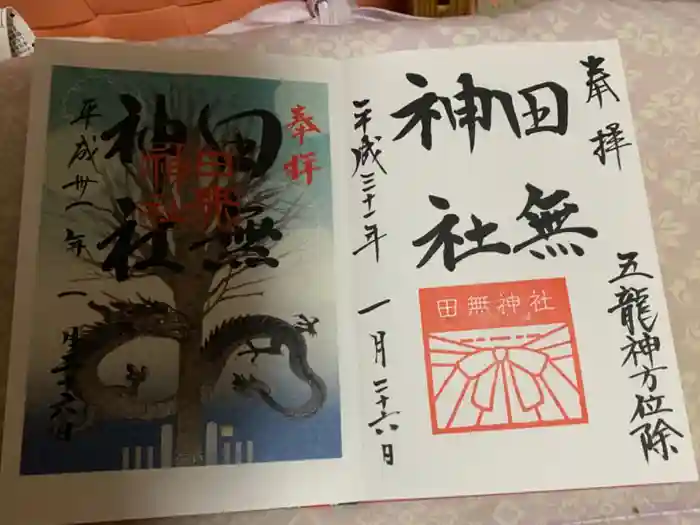 奉拝
田無
神社
平成三十一年
一月二十六日
五龍神方位除
田無神社
奉拝
田無
神社
田無
神社
平成卅一年
一月二十六日